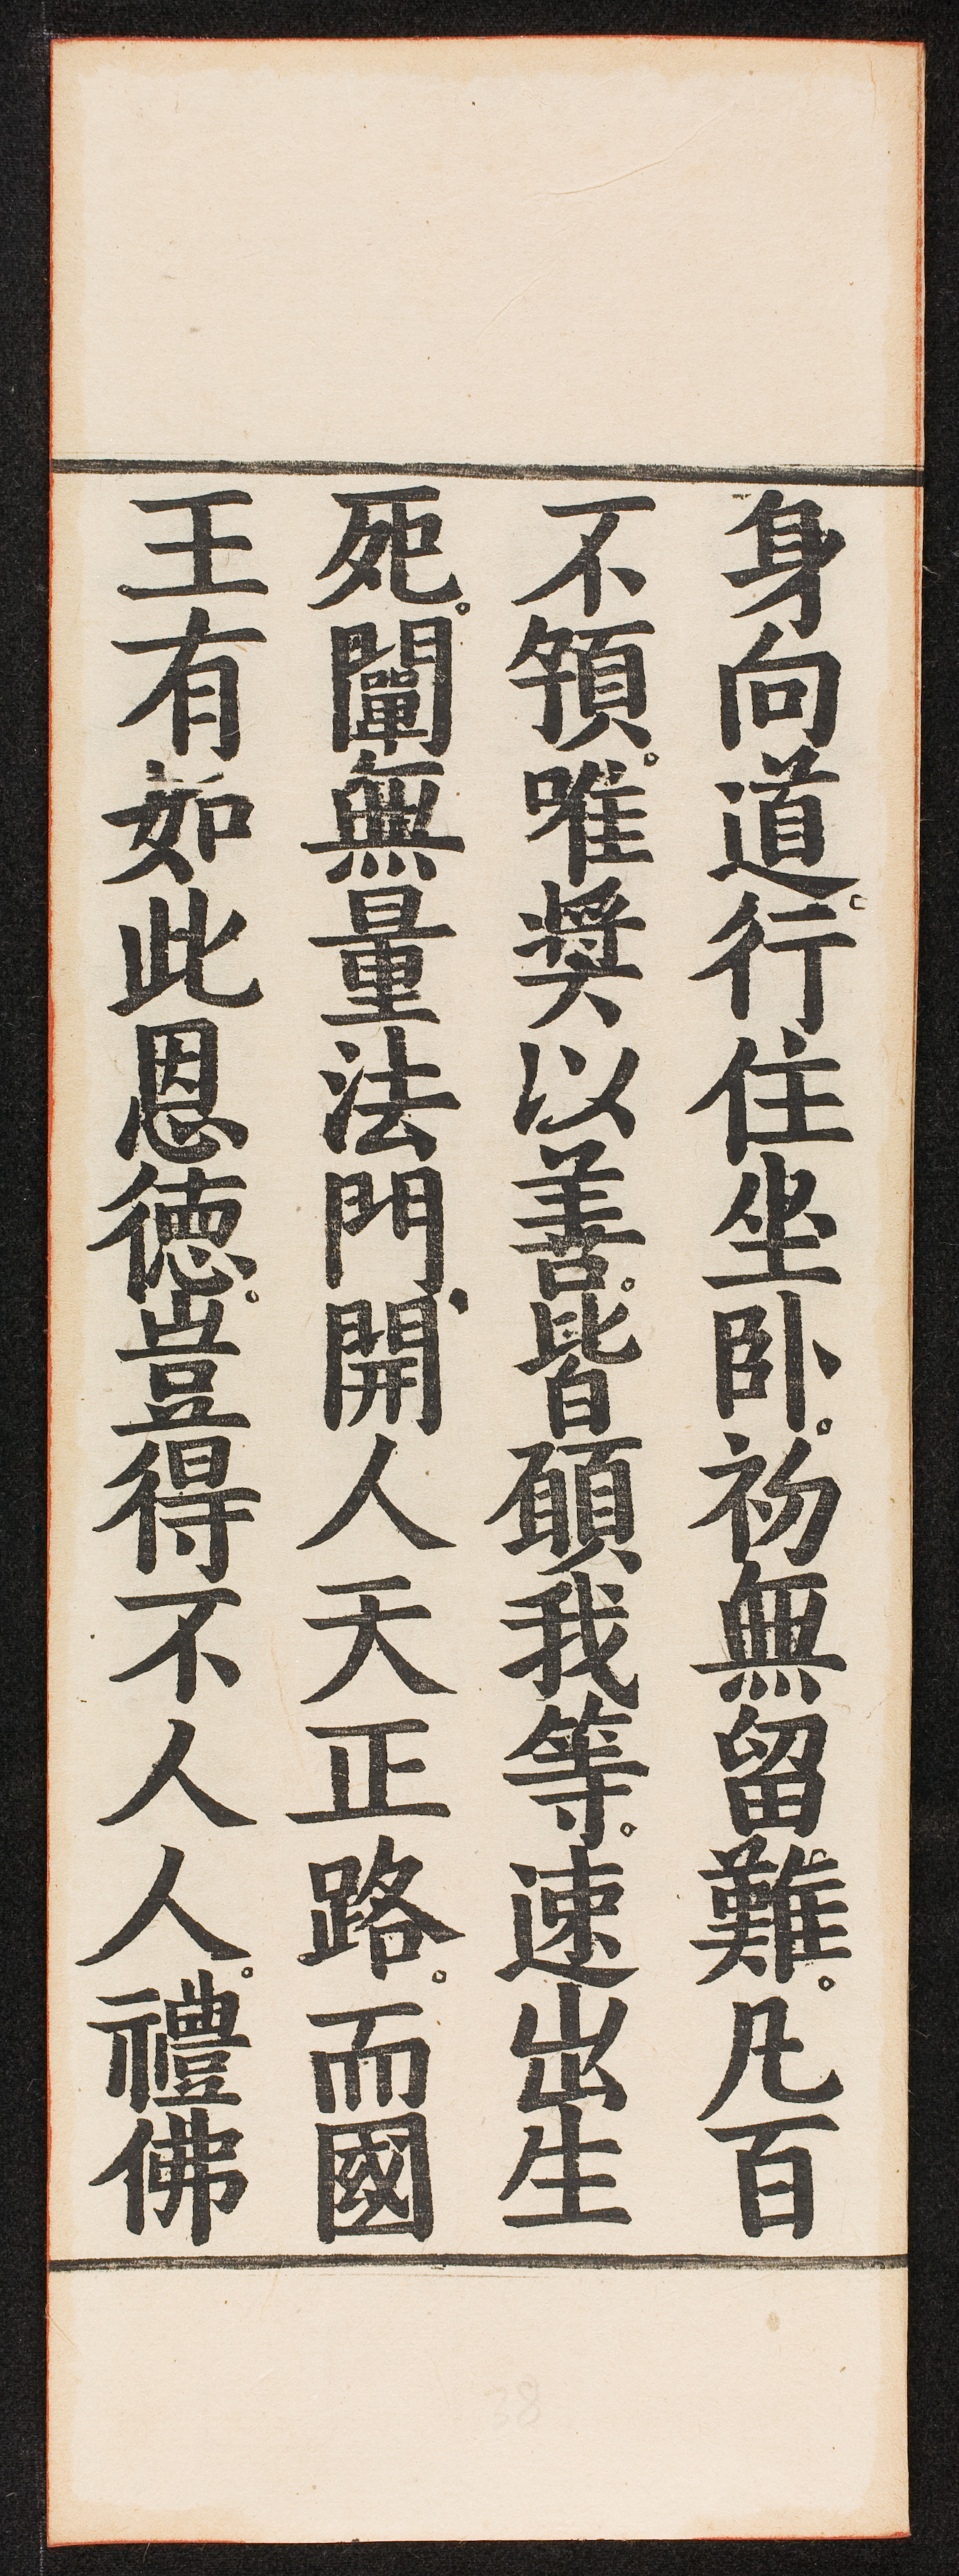 身向道。行住坐卧。初無留難。凡百
不預。唯獎以善。皆願我等。速出生
死。闡無量法門。開人天正路。而國
王有如此恩徳。豈得不人人。禮佛
38